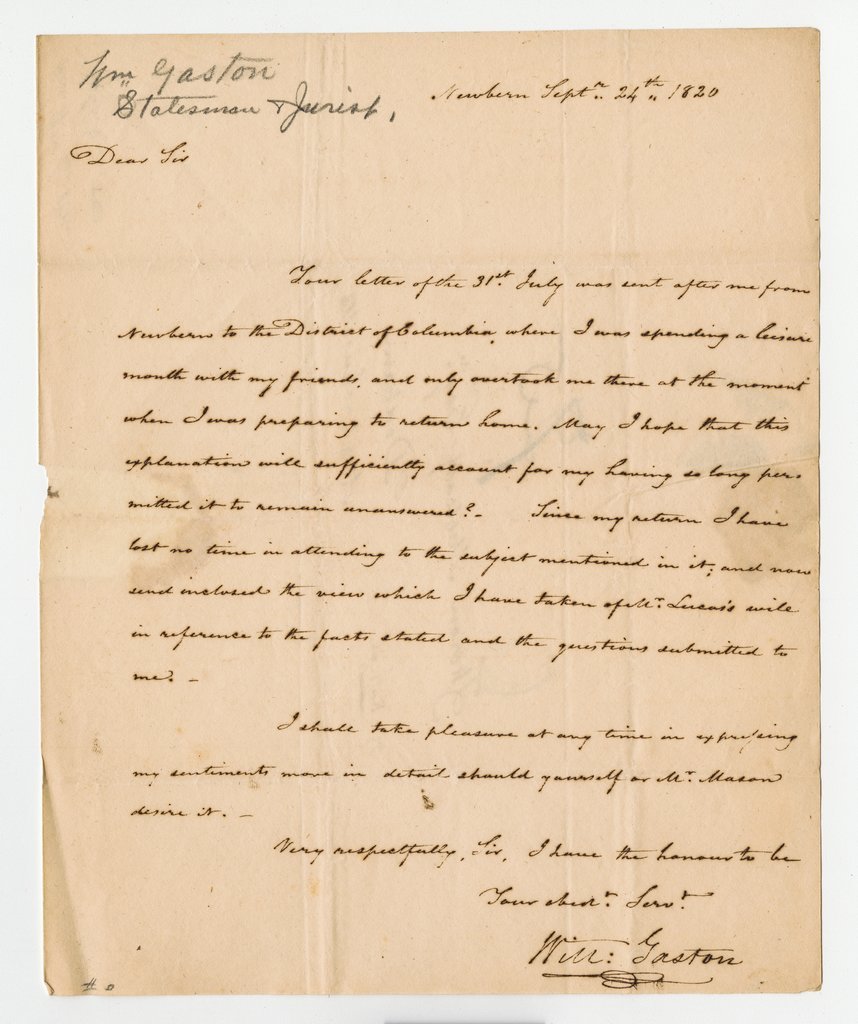 Wm Gaston
Statesman & Jurist,
Newbern Septr. 24th. 1820
Dear Sir
Your letter of the 31st. July was sent after me from
Newbern to the District of Columbia, where I was spending a leisure
month with my friends, and only overtook me there at the moment
when I was preparing to return home. May I hope that this
explanation will sufficiently account for my having so long per-
mitted it to remain unanswered? - Since my return I have
lost no time in attending to the subject mentioned in it; and now
send inclosed the view which I have taken of Mr. Lucas's will
in reference to the facts stated and the questions submitted to
me. -
I shall take pleasure at any time in expressing
my sentiments more in detail should yourself or Mr. Mason
desire it. -
Very respectfully, Sir, I have the honour to be
Your obedt. Servt.
Will: Gaston